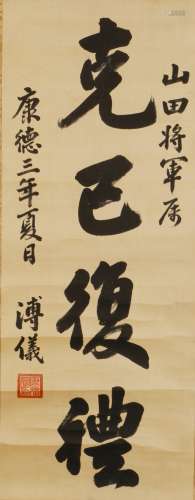 山田将軍属
克己復禮
康德三年夏日
溥儀